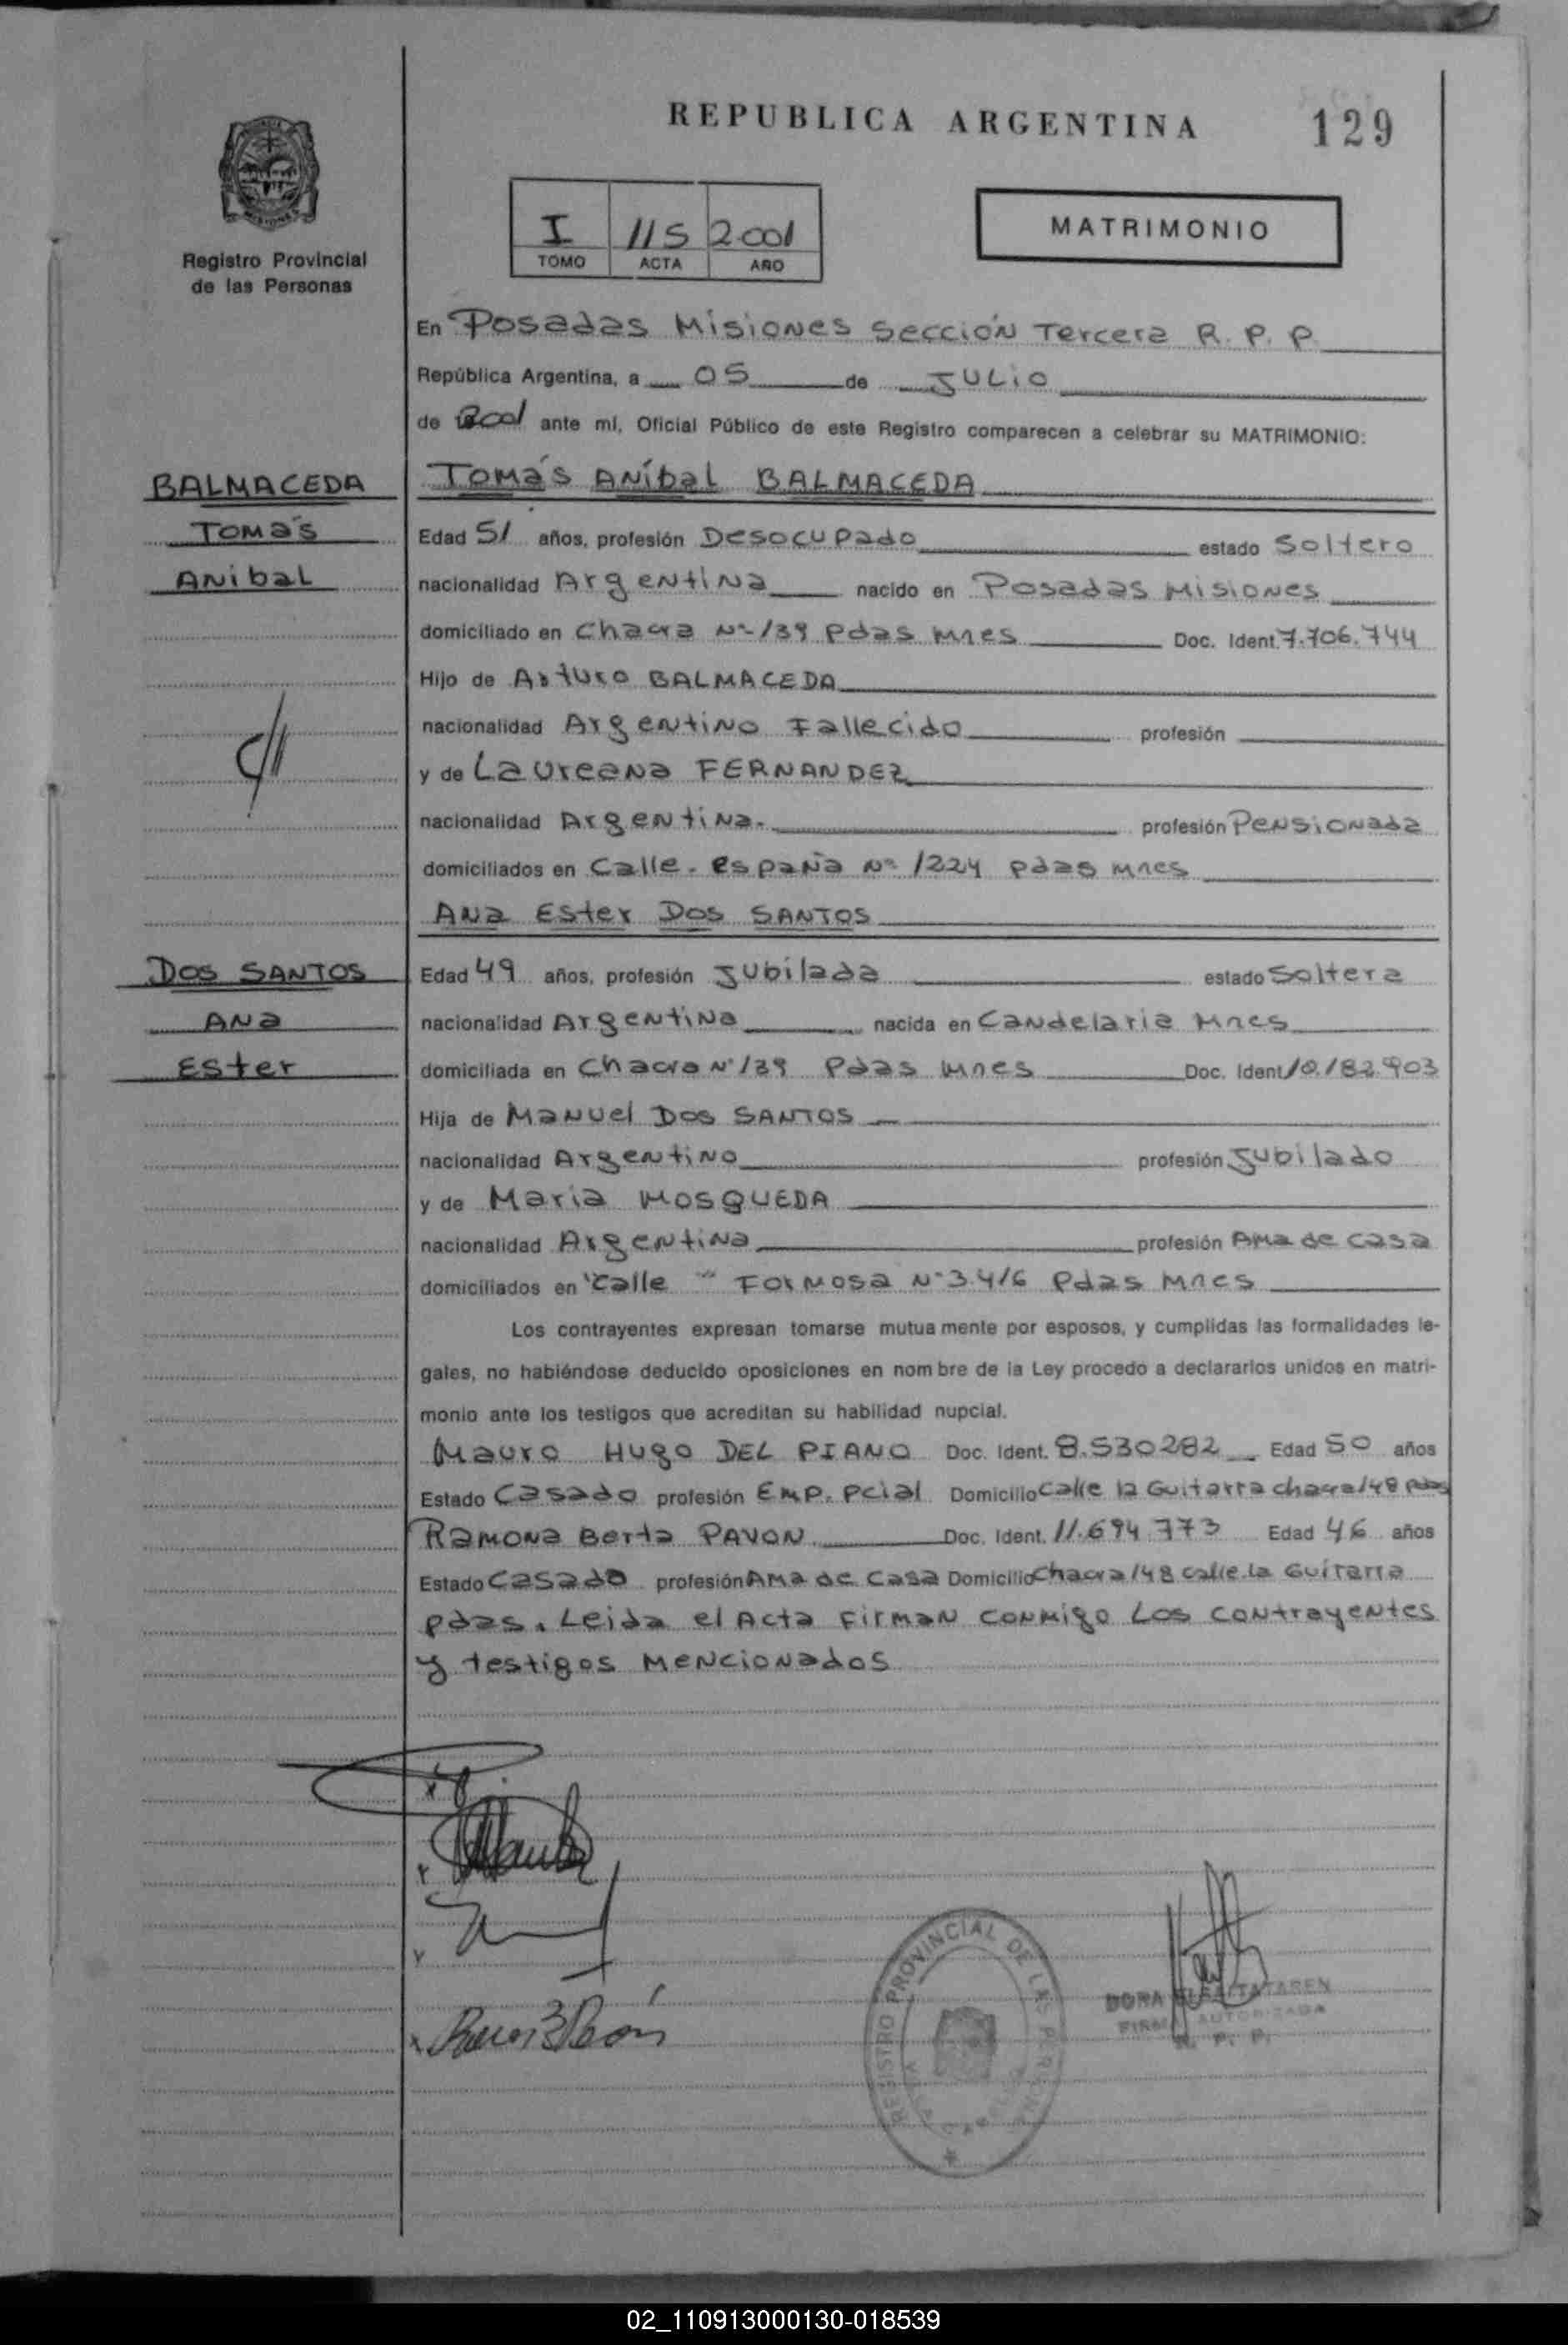 REPUBLICA ARGENTINA 129
Registro Provincial
de las Personas
I 115 2001
TOMO ACTA AÑO
MATRIMONIO
En Posadas Misiones Sección Tercera R. P. P.
República Argentina, a 05 de Julio
de 2001 ante mí, Oficial Público de este Registro comparecen a celebrar su MATRIMONIO:
BALMACEDA Tomás Aníbal BALMACEDA
Tomás Edad 51 años, profesión Desocupado estado Soltero
Anibal nacionalidad Argentina nacido en Posadas Misiones
domiciliado en Chacra Nº 139 Pdas Mnes Doc. Ident. 7.706.744
Hijo de Arturo BALMACEDA
nacionalidad Argentino Fallecido profesión
y de Laureana FERNANDEZ
nacionalidad Argentina. profesión Pensionada
domiciliados en Calle. España Nº 1224 Pdas Mnes
Ana Ester Dos SANTOS
DOS SANTOS Edad 49 años, profesión Jubilada estado Soltera
Ana nacionalidad Argentina nacida en Candelaria Mnes
Ester domiciliada en Chacra Nº 139 Pdas Mnes Doc. Ident. 10.182.903
Hija de Manuel Dos SANTOS
nacionalidad Argentino profesión Jubilado
y de Maria MOSQUEDA
nacionalidad Argentina profesión Ama de casa
domiciliados en "Calle " Formosa Nº 3.416 Pdas Mnes
Los contrayentes expresan tomarse mutuamente por esposos, y cumplidas las formalidades le-
gales, no habiéndose deducido oposiciones en nombre de la Ley procedo a declararlos unidos en matri-
monio ante los testigos que acreditan su habilidad nupcial.
Mauro Hugo DEL PIANO Doc. Ident. 8.530282 Edad 50 años
Estado Casado profesión Emp. Pcial Domicilio Calle la Guitarra chacra 148 Pdas
Ramona Berta PAVON Doc. Ident. 11.694.773 Edad 46 años
Estado Casado profesión Ama de Casa Domicilio Chacra 148 calle la Guitarra
Pdas. Leida el Acta Firman conmigo Los contrayentes
y testigos Mencionados
REGISTRO PROVINCIAL DE LAS PERSONAS
DORA
FIRMA AUTORIZADA
R. P. P.
02_110913000130-018539